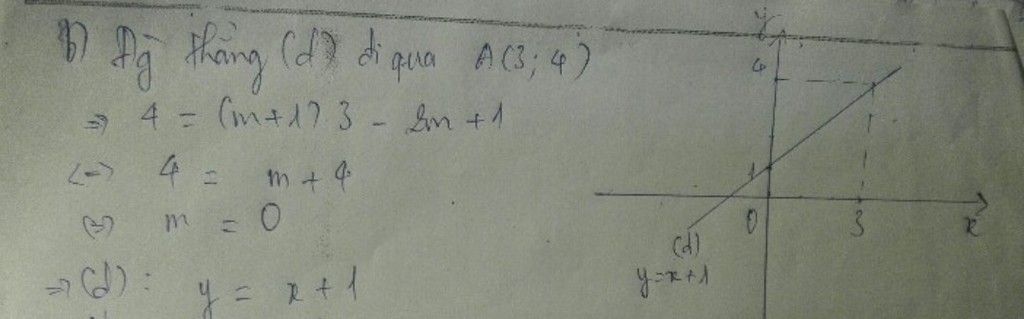 b) Đg thẳng (d) đi qua A(3; 4)
=> 4 = (m+1) 3 - 2m + 1
<=> 4 = m + 4
<=> m = 0
=> (d): y = x + 1
y
4
1
0
3
x
(d)
y=x+1